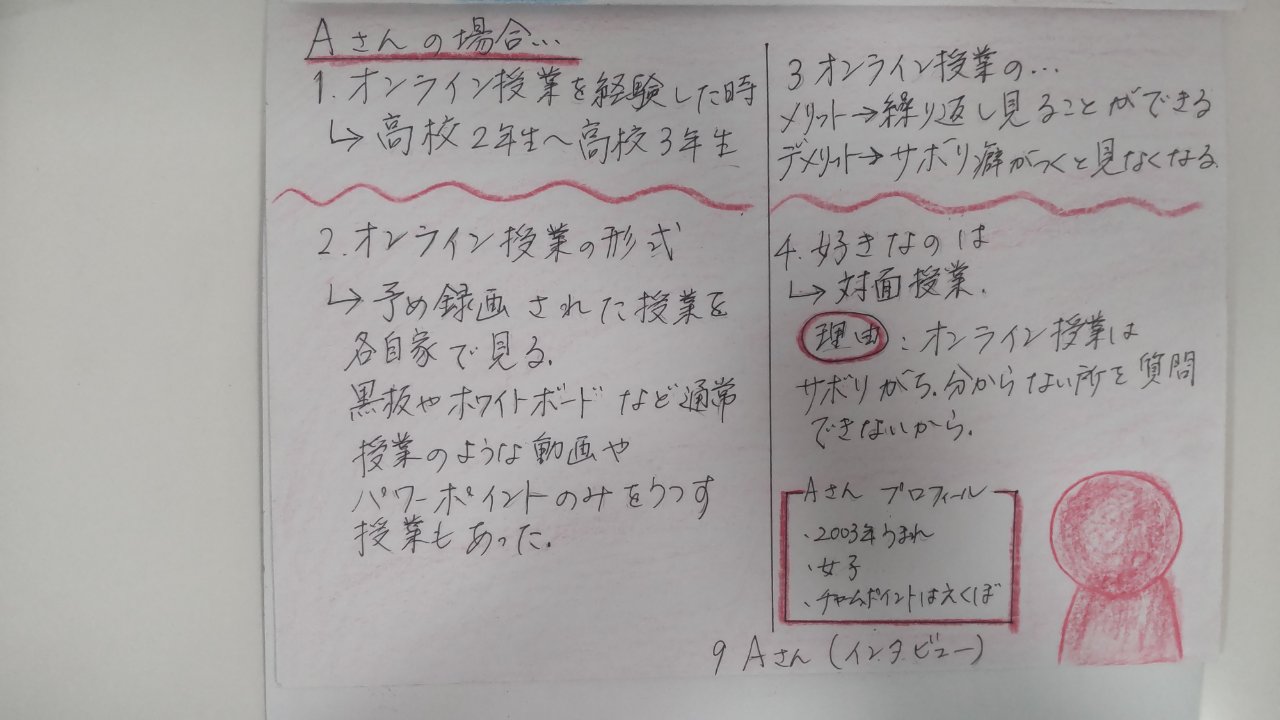 Aさんの場合…
1. オンライン授業を経験した時
↳ 高校2年生〜高校3年生
2. オンライン授業の形式
↳ 予め録画された授業を
各自家で見る.
黒板やホワイトボードなど通常
授業のような動画や
パワーポイントのみをうつす
授業もあった.
3 オンライン授業の…
メリット→繰り返し見ることができる
デメリット→サボり癖がつくと見なくなる.
4. 好きなのは
↳ 対面授業.
理由:オンライン授業は
サボりがち.分からない所を質問
できないから.
Aさん プロフィール
・2003年うまれ
・女子
・チャームポイントはえくぼ
9 Aさん (インタビュー)